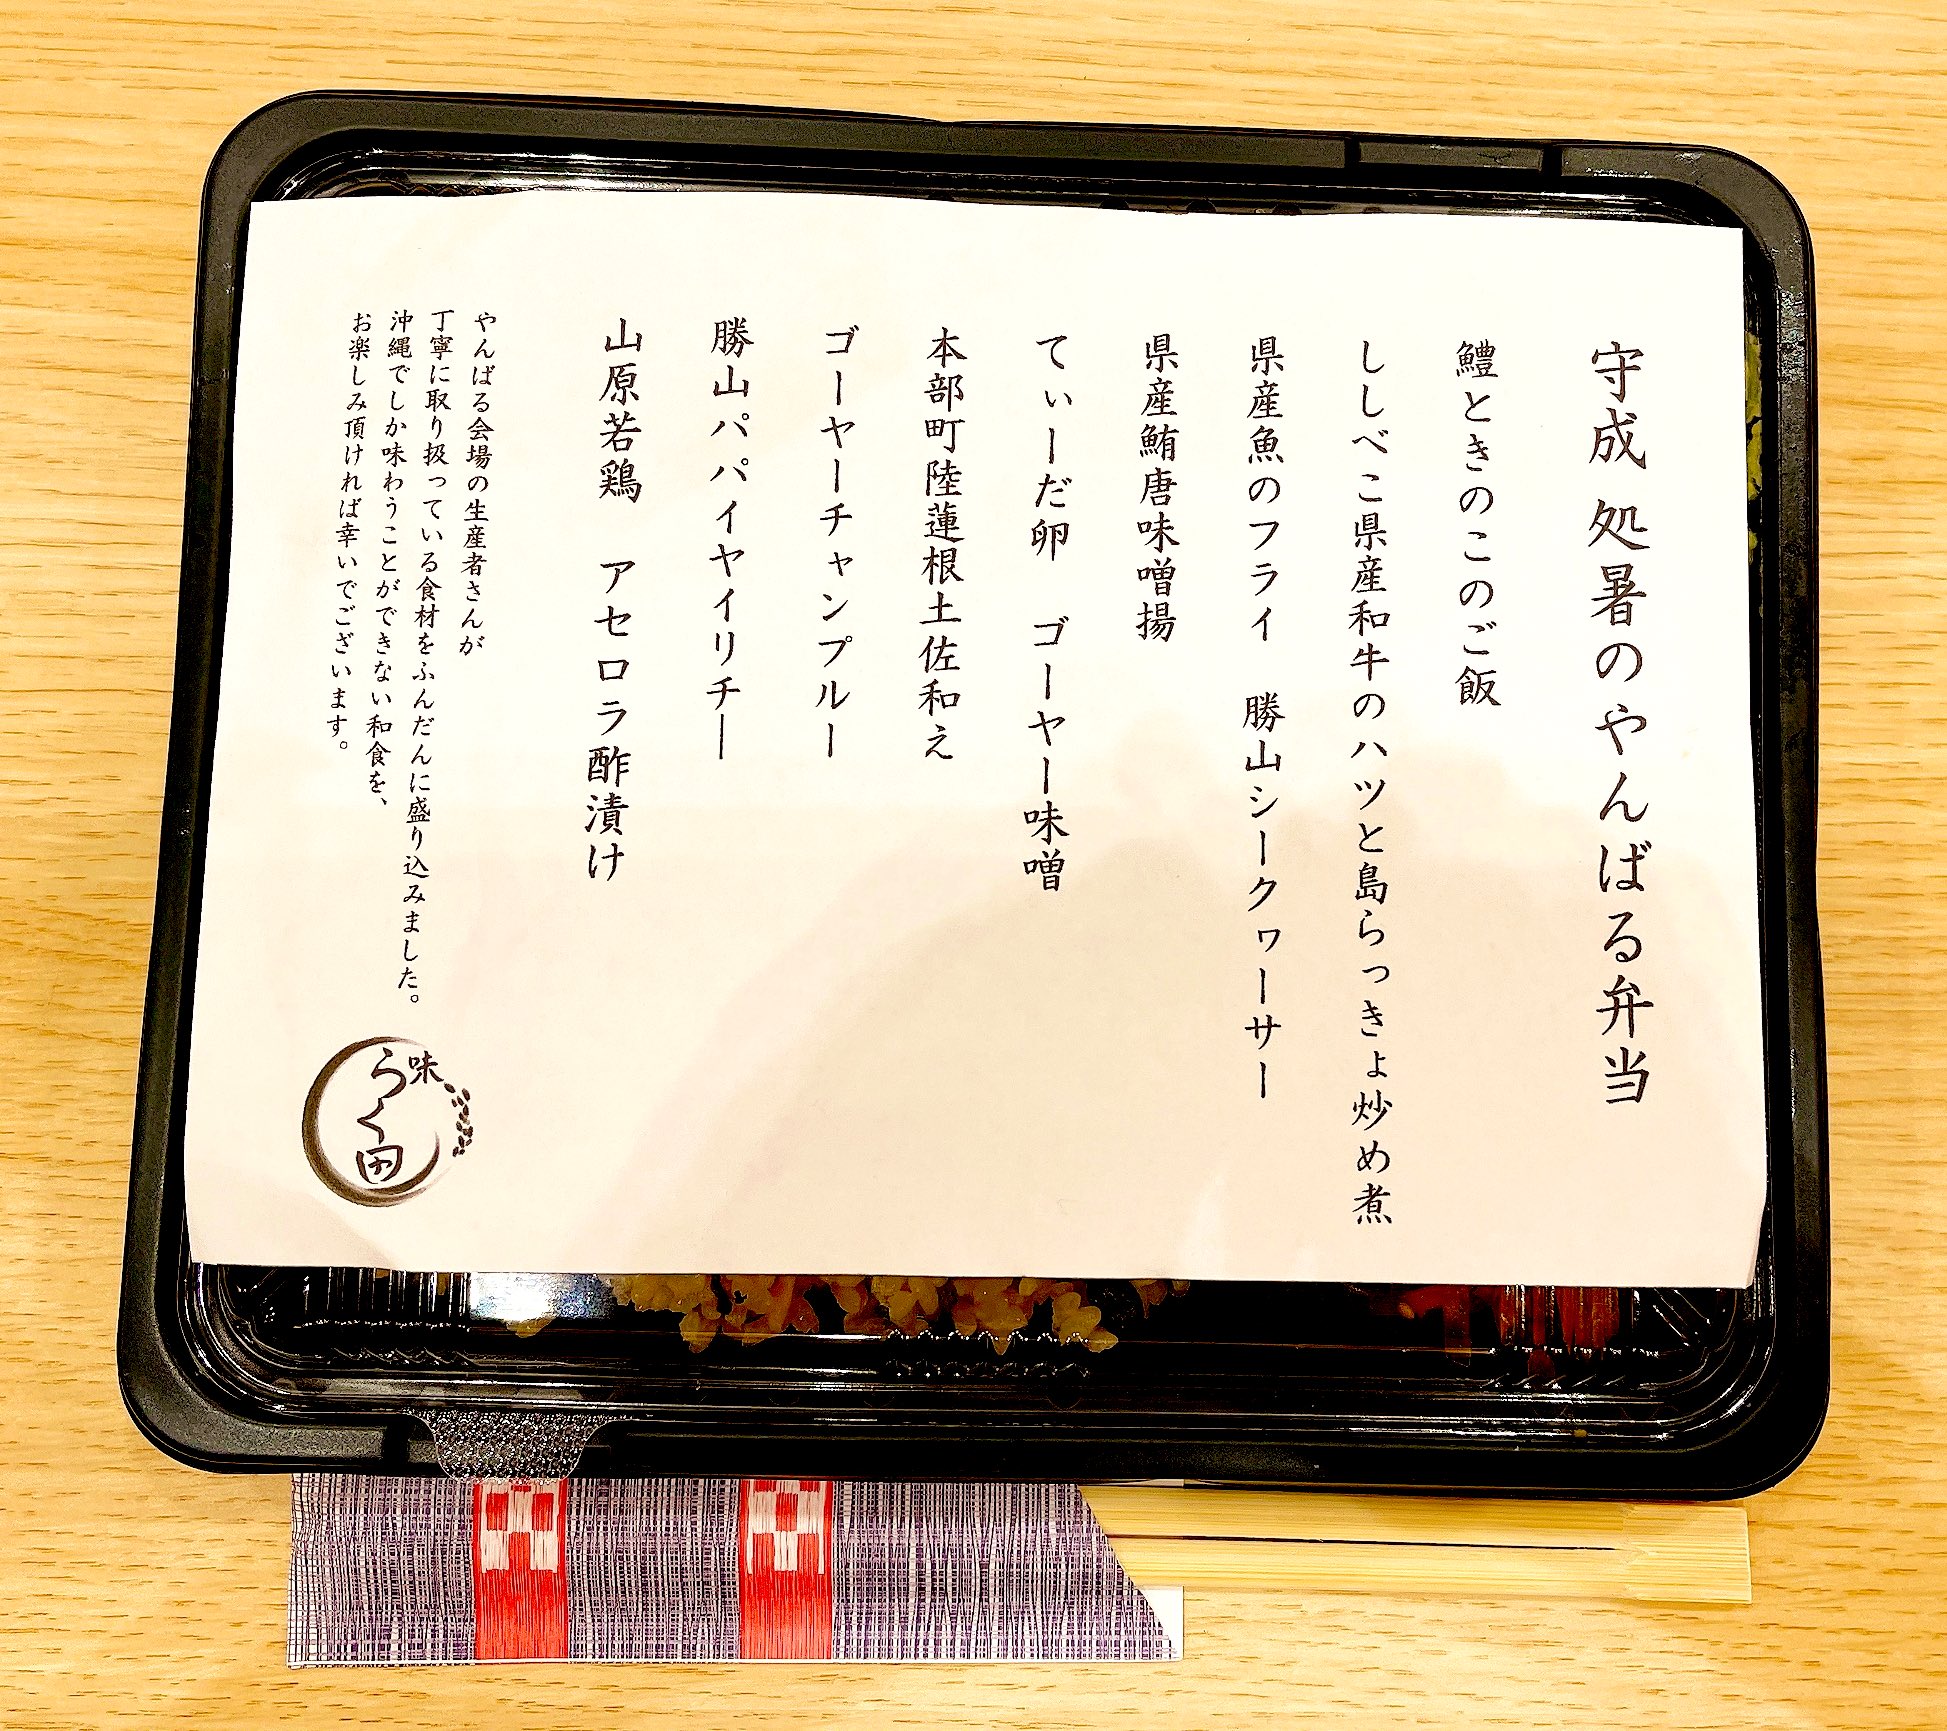 守成 処暑のやんばる弁当
鱧ときのこのご飯
ししべこ県産和牛のハツと島らっきょ炒め煮
県産魚のフライ　勝山シークヮーサー
県産鮪唐味噌揚
てぃーだ卵　ゴーヤー味噌
本部町陸蓮根土佐和え
ゴーヤーチャンプルー
勝山パパイヤイリチー
山原若鶏　アセロラ酢漬け
やんばる会場の生産者さんが
丁寧に取り扱っている食材をふんだんに盛り込みました。
沖縄でしか味わうことができない和食を、
お楽しみ頂ければ幸いでございます。
味
らく田